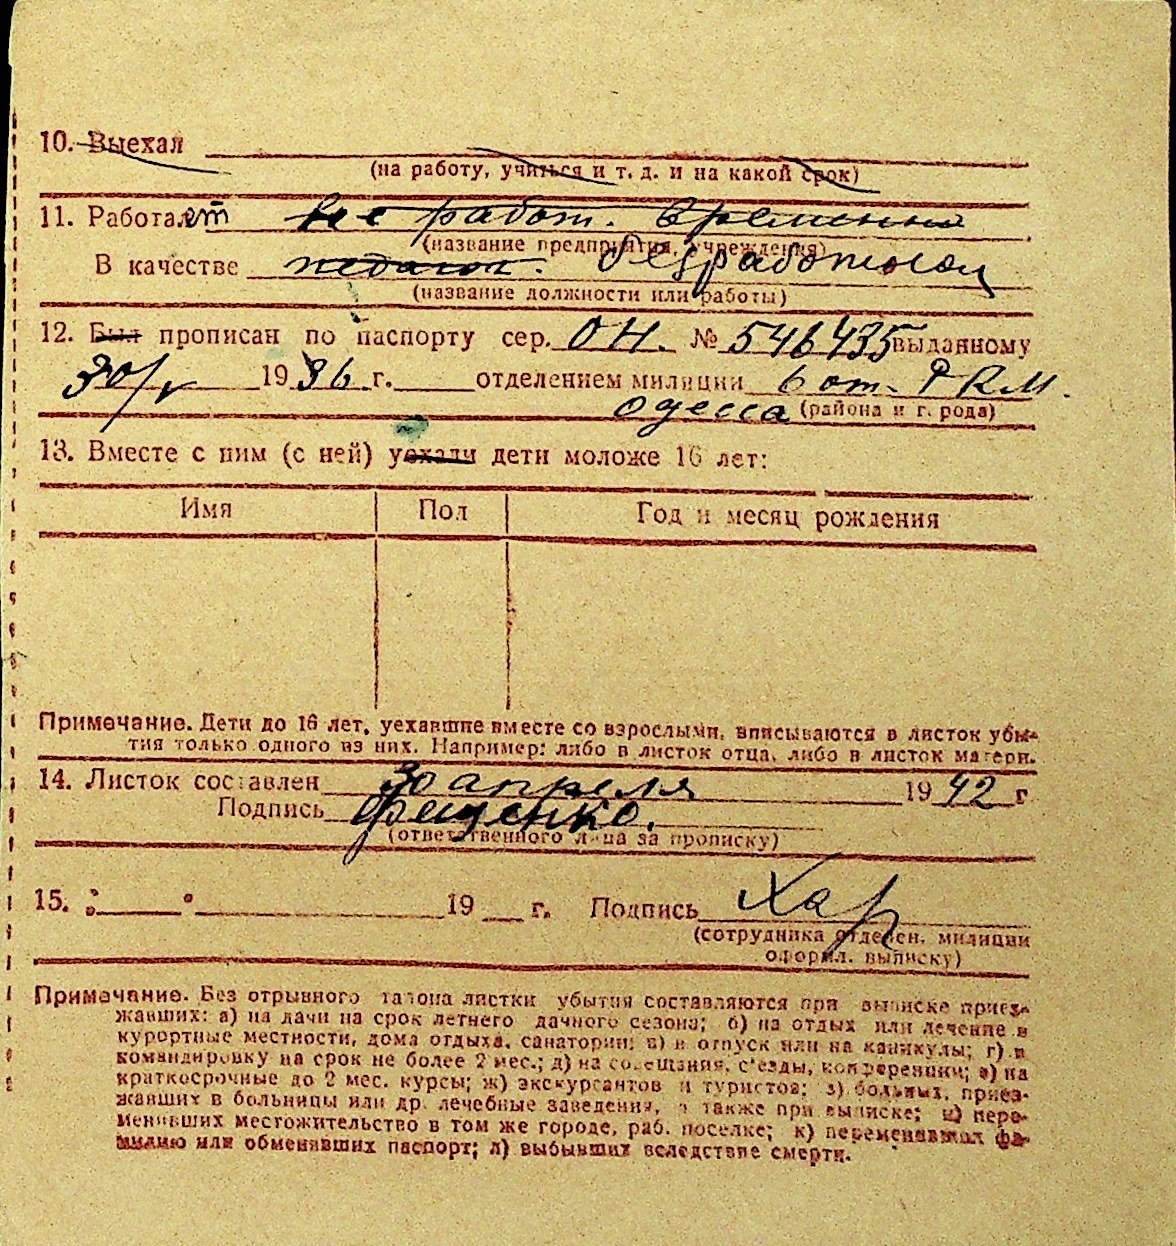 10. Выехал
(на работу, учиться и т. д. и на какой срок)
11. Работает не работ. временно
(название предприятия, учреждения)
В качестве педагог. безработной
(название должности или работы)
12. Был прописан по паспорту сер. ОН. № 546435 выданному
30/V 1936 г. отделением милиции 6 от. РКМ.
Одесса (района и г. рода)
13. Вместе с ним (с ней) уехали дети моложе 16 лет:
Имя Пол Год и месяц рождения
Примечание. Дети до 16 лет, уехавшие вместе со взрослыми, вписываются в листок убы-
тия только одного из них. Например: либо в листок отца, либо в листок матери.
14. Листок составлен 30 апреля 1942 г
Подпись
(ответственного лица за прописку)
15. " " 19 г. Подпись Хар
(сотрудника отделен. милиции
оформл. выписку)
Примечание. Без отрывного талона листки убытия составляются при выписке приез-
жавших: а) на дачи на срок летнего дачного сезона; б) на отдых или лечение в
курортные местности, дома отдыха, санатории; в) в отпуск или на каникулы; г) в
командировку на срок не более 2 мес.; д) на совещания, с'езды, конференции; е) на
краткосрочные до 2 мес. курсы; ж) экскурсантов и туристов; з) больных, приез-
жавших в больницы или др. лечебные заведения, а также при выписке; и) пере-
менивших местожительство в том же городе, раб. поселке; к) переменивших фа-
милию или обменявших паспорт; л) выбывших вследствие смерти.